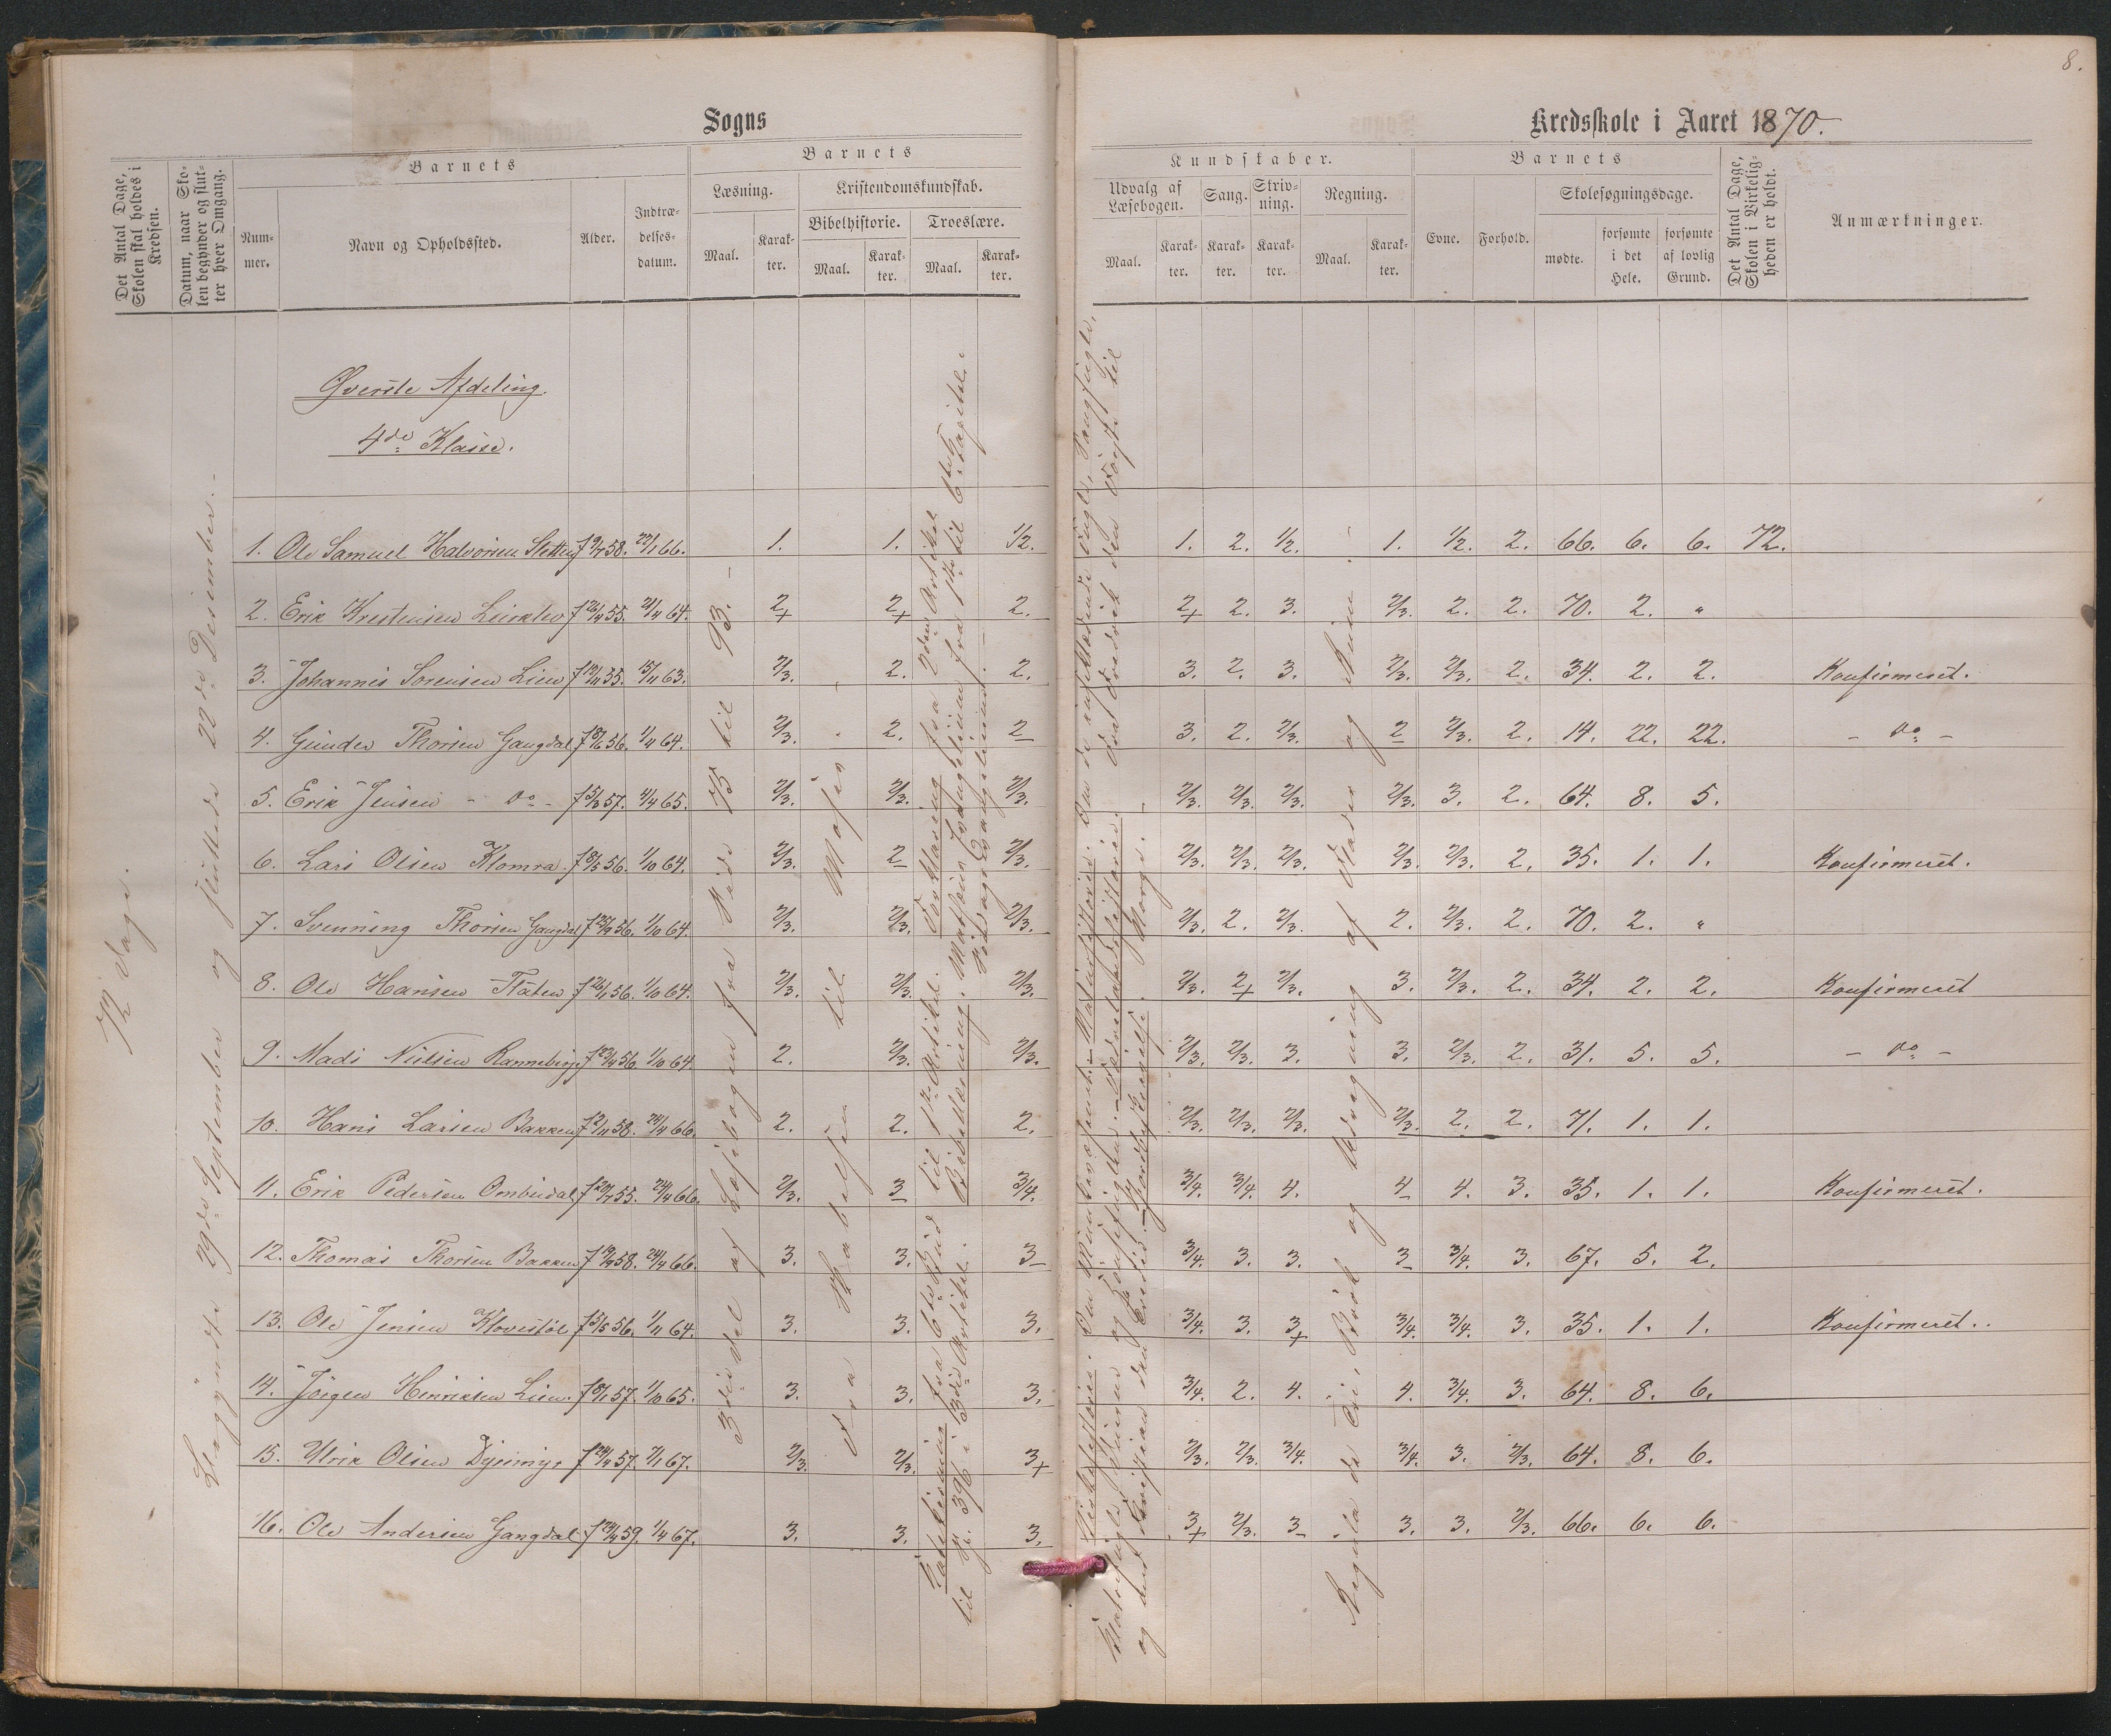 8.
Sogns
Kredsskole i Aaret 1870.
Det Antal Dage, Skolen skal holdes i Kredsen.
Datum, naar Skolen begynder og slutter hver Omgang.
Barnets
Nummer.
Navn og Opholdssted.
Alder.
Indtrædelsesdatum.
Barnets
Læsning.
Maal.
Karakter.
Kristendomskundskab.
Bibelhistorie.
Maal.
Karakter.
Troeslære.
Maal.
Karakter.
Kundskaber.
Udvalg af Læsebogen.
Maal.
Karakter.
Sang.
Karakter.
Skrivning.
Karakter.
Regning.
Maal.
Karakter.
Barnets
Evne.
Forhold.
Skolesøgningsdage.
mødte.
forsømte i det Hele.
forsømte af lovlig Grund.
Det Antal Dage, Skolen i Virkeligheden er holdt.
Anmærkninger.
Øverste Afdeling.
4de Klasse.
72 Dage.
Begyndte 29de September og sluttede 22de Desember.
3die Del af Læsebogen fra Side 75 til 93.
Fra Skabelsen til Moses.
Katekisning fra 6te Bud til 1ste Artikel. Forklaring fra 2den Artikel
til Sp. 396 i 3die Artikel. Bibellæsning. Matthæus Evangelium fra 1ste til 6te Kapitel.
Regula de Tri, Brøk og Udregning af Flader og
1. Ole Samuel Halvorsen Sletten f 9/7 58. 22/1 66. 1. 1. 1/2. 1. 2. 1/2. 1. 1/2. 2. 66. 6. 6. 72.
2. Erik Krestensen f 26/4 55. 21/4 64. 2+ 2+ 2. 2+ 2. 3. 2/3. 2. 2. 70. 2. "
3. Johannes Sørensen Lien f 19/11 55. 15/11 63. 2/3. 2. 2. 3. 2. 3. 2/3. 2/3. 2. 34. 2. 2. Konfirmeret.
4. Gunder Thorsen Gangdal f 18/6 56. 1/4 64. 2/3. 2. 2 3. 2. 2/3. 2 2/3. 2. 14. 22. 22. – do –
5. Erik Jensen – do – f 5/3 57. 4/4 65. 2/3. 2/3. 2/3. 2/3. 2/3. 2/3. 2/3. 3. 2. 64. 8. 5.
6. Lars Olsen Klomra f 8/5 56. 1/10 64. 2/3. 2 2/3. 2/3. 2/3. 2/3. 2/3. 2/3. 2. 35. 1. 1. Konfirmeret.
7. Svenning Thorsen Gangdal f 25/9 56. 1/10 64. 2/3. 2/3. 2/3. 2/3. 2. 2/3. 2. 2/3. 2. 70. 2. "
8. Ole Hansen f 26/1 56. 1/10 64. 2/3. 2/3. 2/3. 2/3. 2+ 2/3. 3. 2/3. 2. 34. 2. 2. Konfirmeret
9. Mads Nielsen f 23/4 56. 1/10 64. 2. 2/3. 2/3. 2/3. 2/3. 3. 3. 2/3. 2. 31. 5. 5. – do –
10. Hans Larsen Bakken f 12/11 58. 24/4 66. 2. 2. 2. 2/3. 2/3. 2/3. 2/3. 2. 2. 71. 1. 1.
11. Erik Pedersen Ombudal f 20/7 55. 24/4 66. 2/3. 3 3/4. 3/4. 3/4. 4. 4 4. 3. 35. 1. 1. Konfirmeret.
12. Thomas Thorsen Bakken f 19/9 58. 24/4 66. 3. 3. 3 3/4. 3. 3. 3 3/4. 3. 67. 5. 2.
13. Ole Jensen Klovestøl f 5/5 56. 1/11 64. 3. 3. 3. 3/4. 3. 3+ 3/4. 3/4. 3. 35. 1. 1. Konfirmeret.
14. Jørgen Henriksen Lien f 8/1 57. 1/10 65. 3. 3. 3. 3/4. 2. 4. 4. 3/4. 3. 64. 8. 6.
15. Ulrik Olsen f 24/4 57. 7/1 67. 2/3. 2/3. 3+ 2/3. 2/3. 3/4. 3/4. 3. 2/3. 64. 8. 6.
16. Ole Andersen Gangdal f 24/4 59. 1/4 67. 3. 3. 3. 3+ 2/3. 3 3. 3. 2/3. 66. 6. 6.